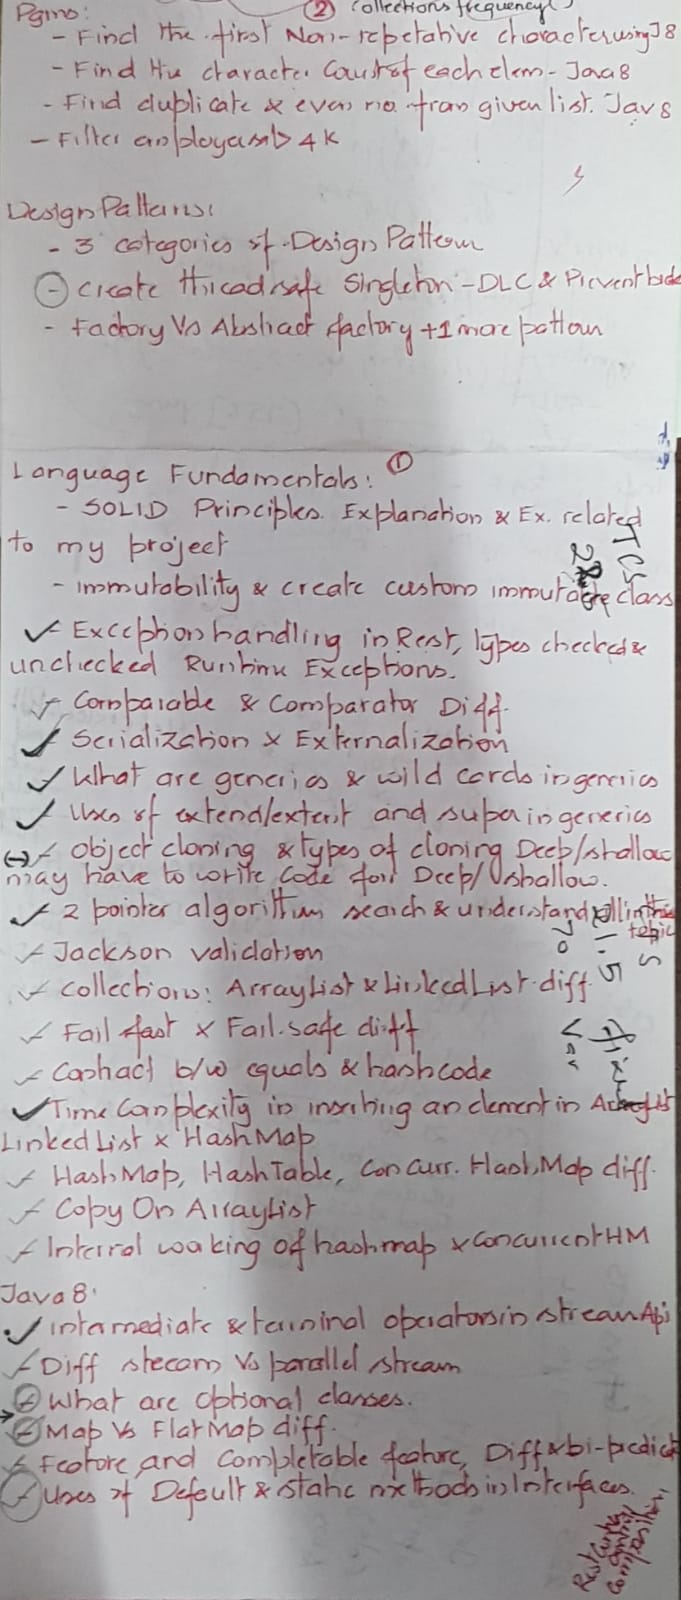 Pgms: ② Collections frequency()
- Find the first Non-repetative character using J8
- Find the character Count of each elem - Java8
- Find duplicate & even no. from given list. Jav8
- Filter employee sal > 4K
Design Patterns:
- 3 categories of Design Pattern
- Create thread safe Singleton - DLC & Prevent
- Factory Vs Abstract factory + 1 more pattern
Language Fundamentals: ①
- SOLID Principles. Explanation & Ex. related
to my project
- immutability & create custom immutable class
Exception handling in Rest, types checked &
unchecked Runtime Exceptions.
Comparable & Comparator Diff.
Serialization & Externalization
What are generics & wild cards in generics
Uses of extend/extent and super in generics
Object cloning & types of cloning Deep/shallow
may have to write code for Deep/shallow.
2 pointer algorithm search & understand all in this
topic
Jackson validation
Collections: ArrayList & LinkedList diff.
Fail fast & Fail safe diff
Contract b/w equals & hashcode
Time Complexity in inserting an element in
Linked List & HashMap
HashMap, HashTable, Concurr. HashMap diff.
Copy On ArrayList
Internal working of hashmap & concurrentHM
Java 8:
intermediate & terminal operators in stream Api
Diff stream Vs parallel stream
What are Optional classes.
Map Vs Flat Map diff.
Feature and Completable feature, Diff & bi-predict
Uses of Default & static methods in Interfaces.